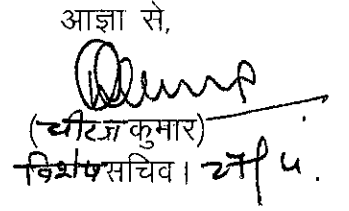 आज्ञा से,
(धीरज कुमार)
विशेष सचिव।